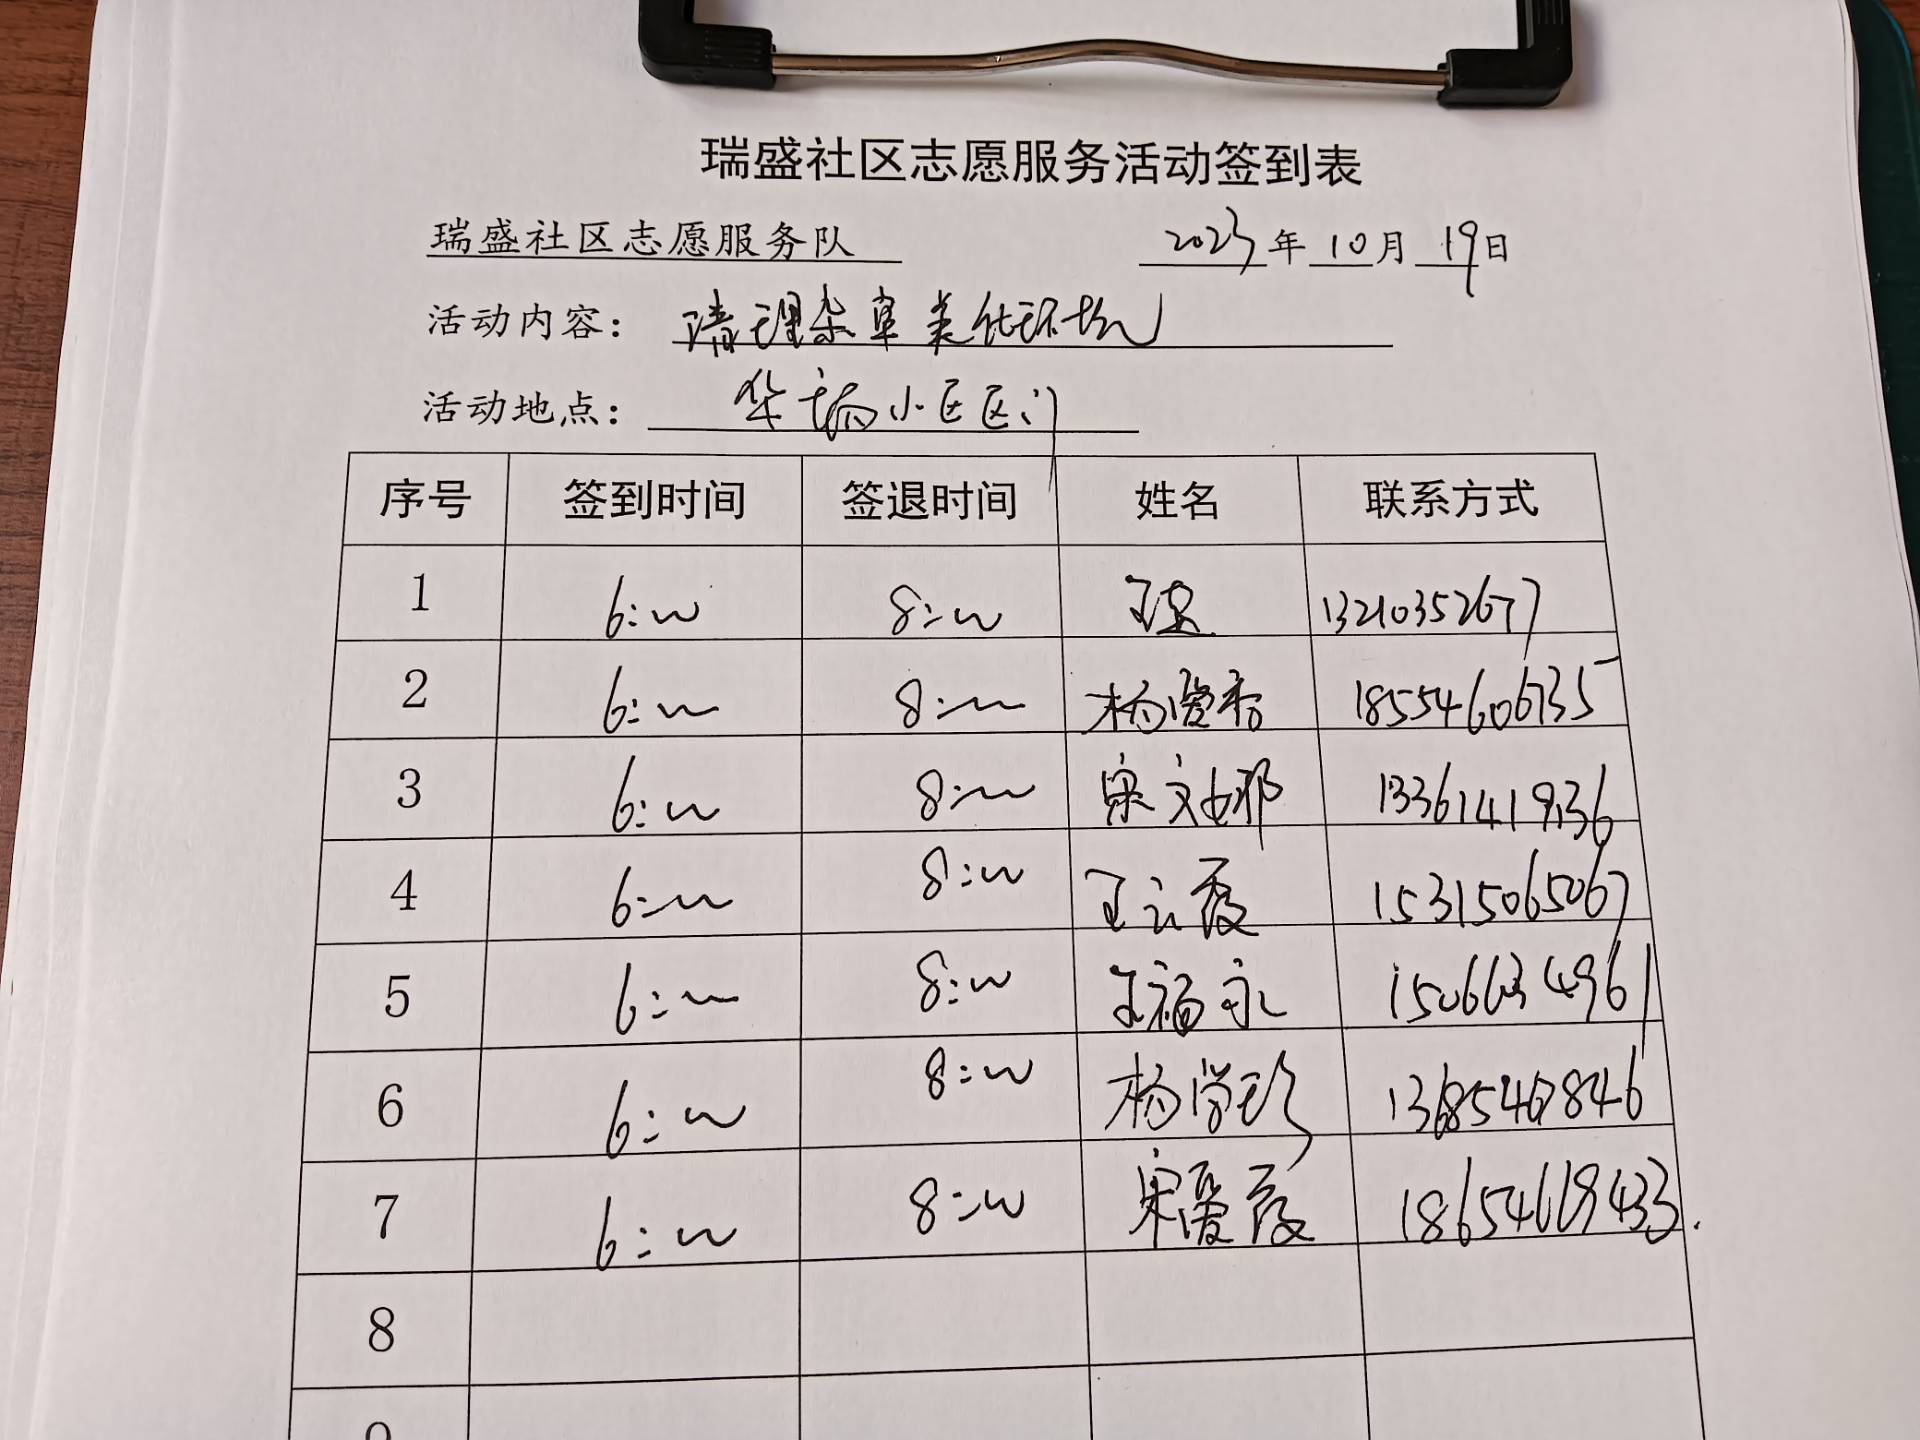 瑞盛社区志愿服务活动签到表
瑞盛社区志愿服务队 2023年10月19日
活动内容: 清理杂草美化环境
活动地点: 华瑞小区区门
序号 签到时间 签退时间 姓名 联系方式
1 6:00 8:00 13210352677
2 6:00 8:00 杨爱香 18554606735
3 6:00 8:00 宋文娜 13361419136
4 6:00 8:00 王云霞 15315065067
5 6:00 8:00 王福永 15066134961
6 6:00 8:00 杨学珍 1368546846
7 6:00 8:00 宋爱霞 18654619433
8